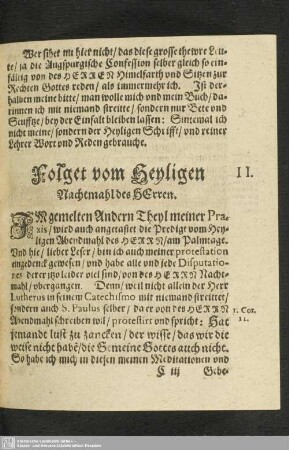 Wer sihet nu hier nicht / das diese grosse thewre Leu-
te / ja die Augspurgische Confession selber gleich so ein-
fältig von des HERREN Himelfarth und Sitzen zur
Rechten Gottes reden / als immermehr ich. Ist der-
halben meine bitte / man wolle mich und mein Buch / da-
rinnen ich mit niemand streitte / sondern nur Bete und
Seufftze / bey der Einfalt bleiben lassen: Sintemal ich
nicht meine / sondern der Heyligen Schrifft / und reiner
Lehrer Wort und Reden gebrauche.
Folget vom Heyligen
II.
Nachtmahl des HErren.
IM gemelten Andern Theyl meiner Pra-
xis / wird auch angetastet die Predigt vom Hey-
ligen Abendmahl des HERRN / am Palmtage.
Und hie / lieber Leser / bin ich auch meiner protestation
eingedenck gewesen / und habe alle und jede Disputatio-
nes / derer itzo leider viel sind / von des HERRN Nacht-
mahl / ubergangen. Denn / weil nicht allein der Herr
Lutherus in seinem Catechismo mit niemand streittet /
sondern auch S. Paulus selber / da er von des HERRN
1. Cor.
Abendmahl schreiben wil / protestirt und spricht: Hat
11.
jemandt lust zu zancken / der wisse / das wir die
weise nicht habē / die Gemeine Gottes auch nicht.
So habe ich mich in diesen meinen Meditationen und
C iij
Gebe-